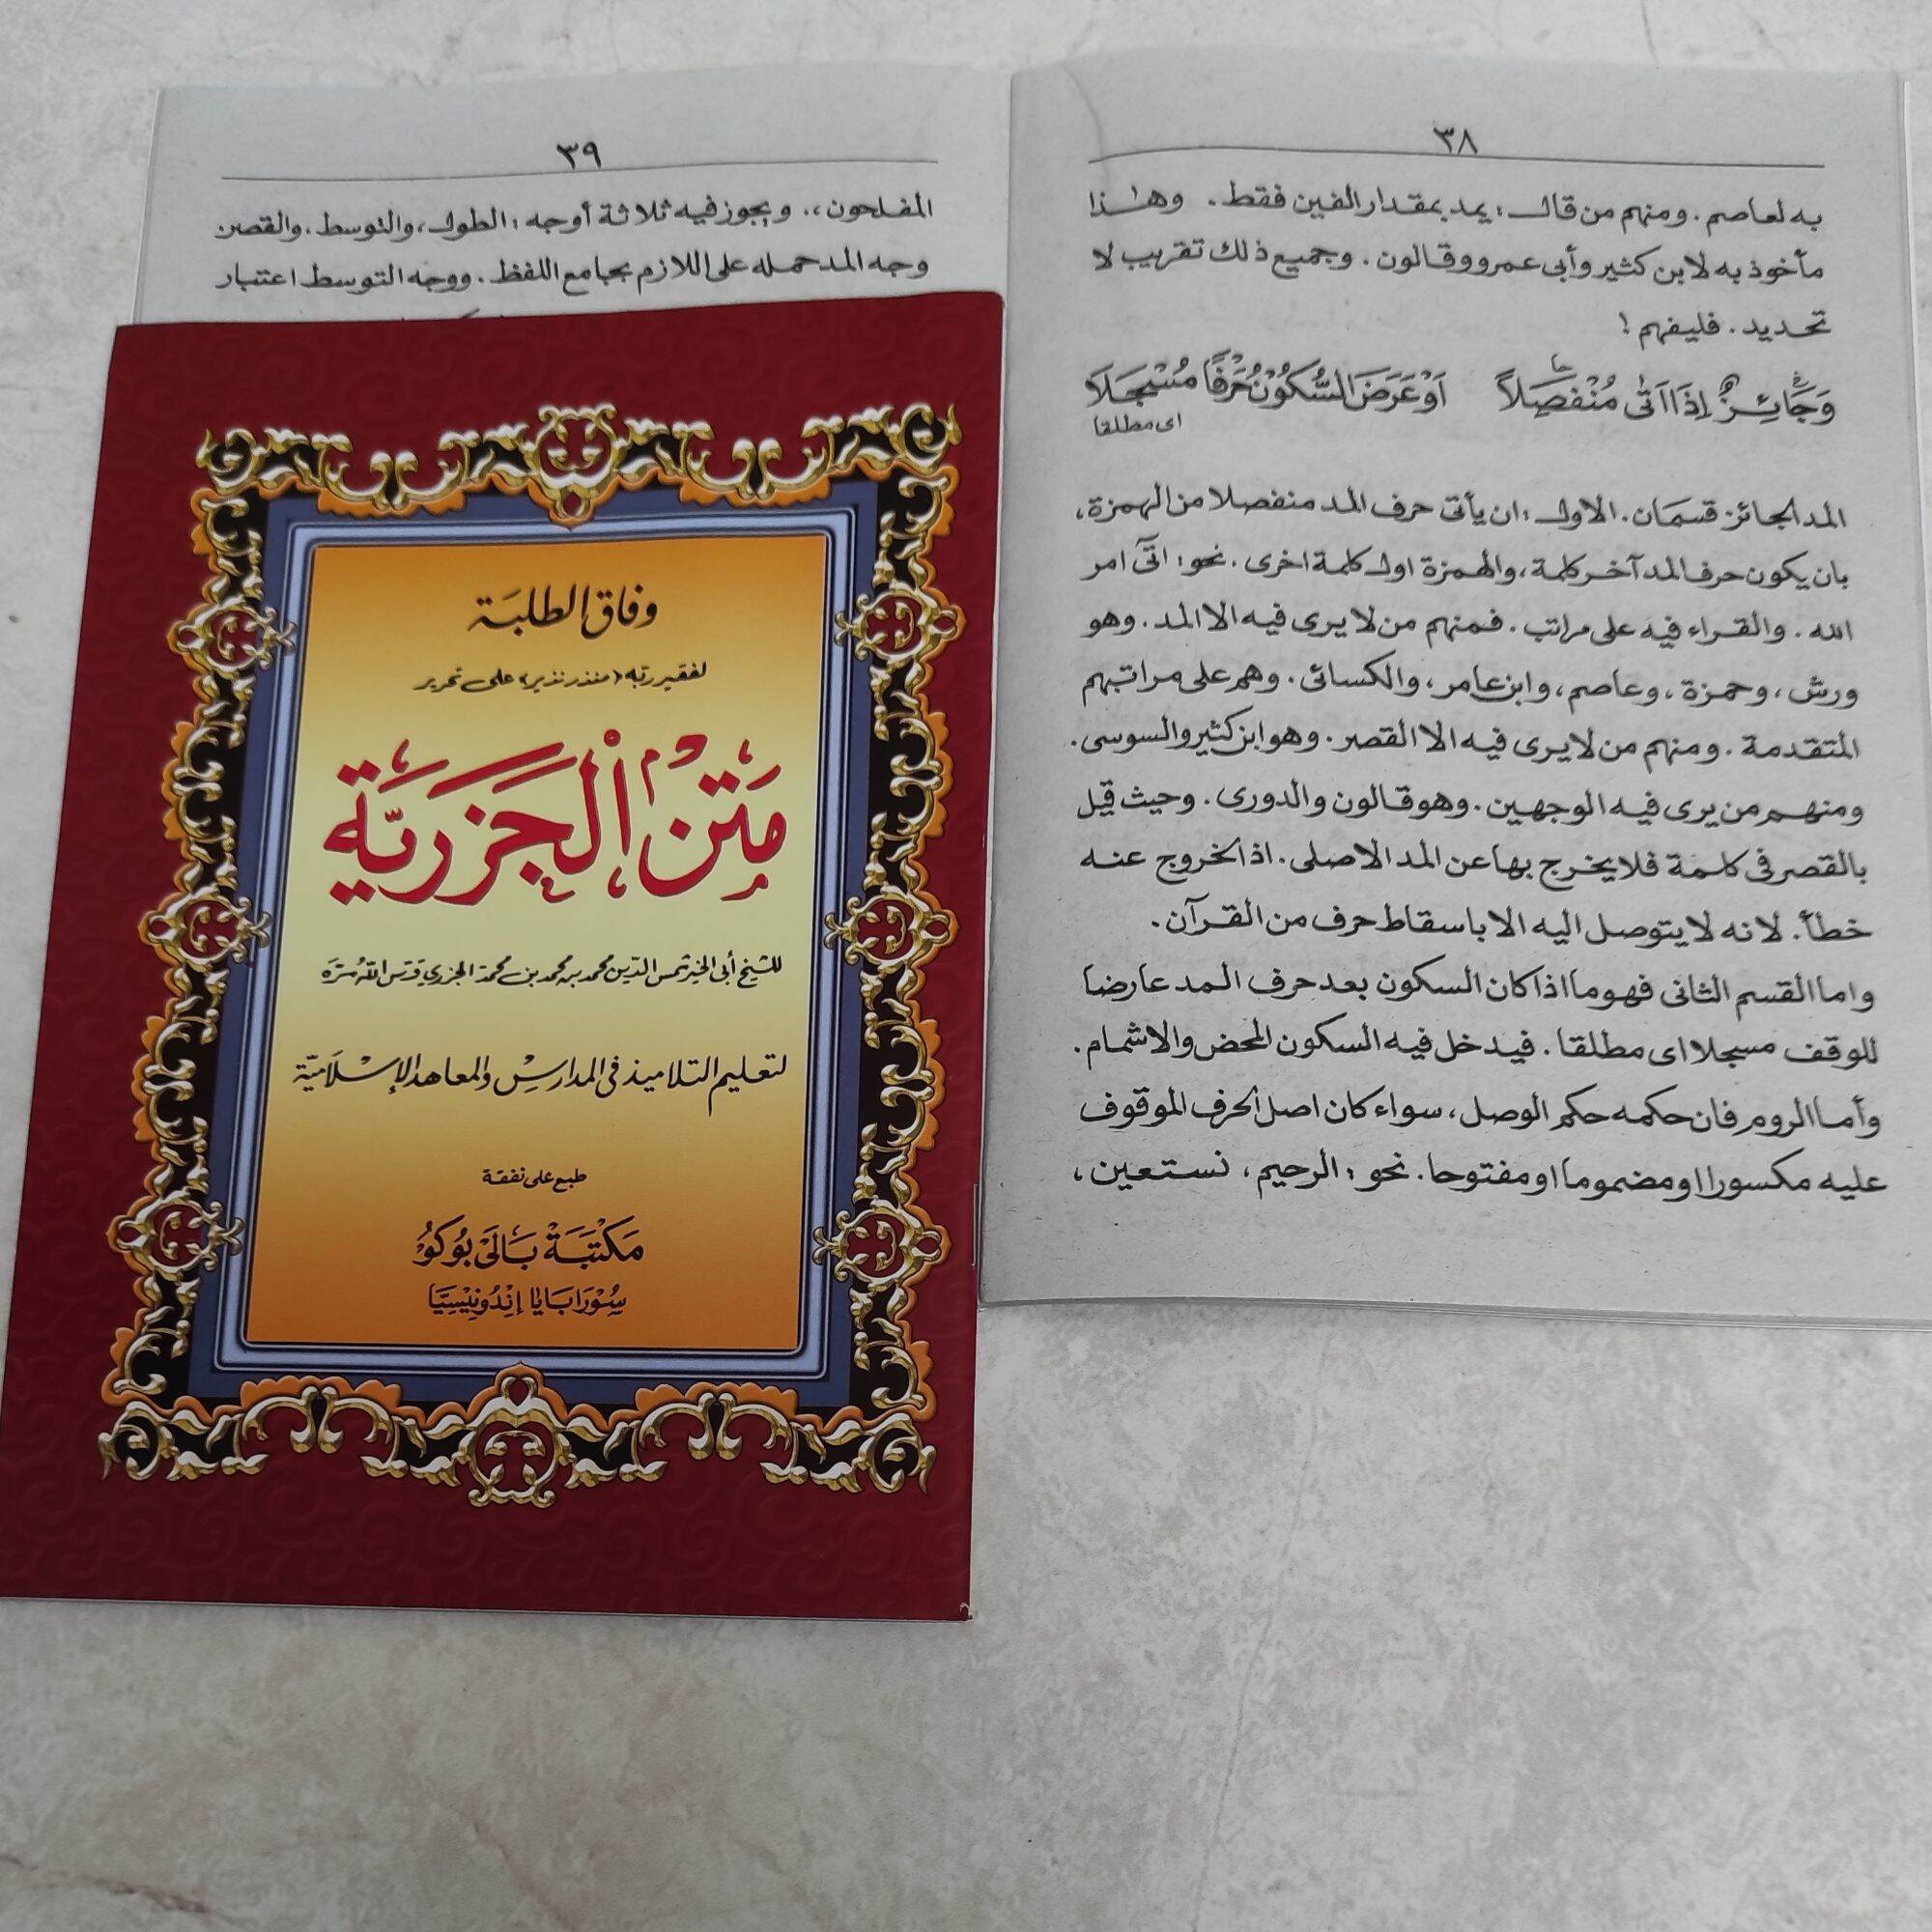 وفاق الطلبَة
لفقير ربّه (منذر نذير) على تحرير
مَتن الْجَزَرِيَّة
للشيخ أبي الخير شمس الدّين محمد بن محمد بن محمد الجزري قدّس اللّه سرّه
لتعليم التلاميذ فى المدارسِ والمعاهد الإسْلَاميّة
طبع على نفقة
مَكْتَبَةْ بَالَىْ بُوكُوْ
سُوْرَابَايَا إِنْدُونِيْسِيَّا
٣٨
به لعاصم. ومنهم من قال: يمد بمقدار الفين فقط. وهـٰذا
مأخوذ به لابن كثير وأبى عمرو وقالون. وجميع ذلك تقريب لا
تحديد. فليفهم!
وَجَائِزٌ إِذَا اَتٰى مُنْفَصِلاً اَوْ عَرَضَ السُّكُوْنُ حَرْفًا مُسْجَلاَ
اى مطلقا
المد الجائز قسمان. الاول: ان يأتى حرف المد منفصلا من الهمزة،
بان يكون حرف المد آخر كلمة، والهمزة اول كلمة اخرى. نحو: اتٓى امر
الله. والقراء فيه على مراتب. فمنهم من لا يرى فيه الا المد. وهو
ورش، وحمزة، وعاصم، وابن عامر، والكسائى. وهم على مراتبهم
المتقدمة. ومنهم من لا يرى فيه الا القصر. وهو ابن كثير والسوسى.
ومنهم من يرى فيه الوجهين. وهو قالون والدورى. وحيث قيل
بالقصر فى كلمة فلا يخرج بها عن المد الاصلى. اذ الخروج عنه
خطأ. لانه لا يتوصل اليه الا باسقاط حرف من القرآن.
واما القسم الثانى فهو ما اذا كان السكون بعد حرف المد عارضا
للوقف مسجلا اى مطلقا. فيدخل فيه السكون المحض والاشمام.
وأما الروم فان حكمه حكم الوصل، سواء كان اصل الحرف الموقوف
عليه مكسورا او مضموما او مفتوحا. نحو: الرحيم، نستعين،
٣٩
المفلحون،. ويجوز فيه ثلاثة أوجه: الطول، والتوسط. والقصر.
وجه المد حمله على اللازم بجامع اللفظ. ووجه التوسط اعتبار